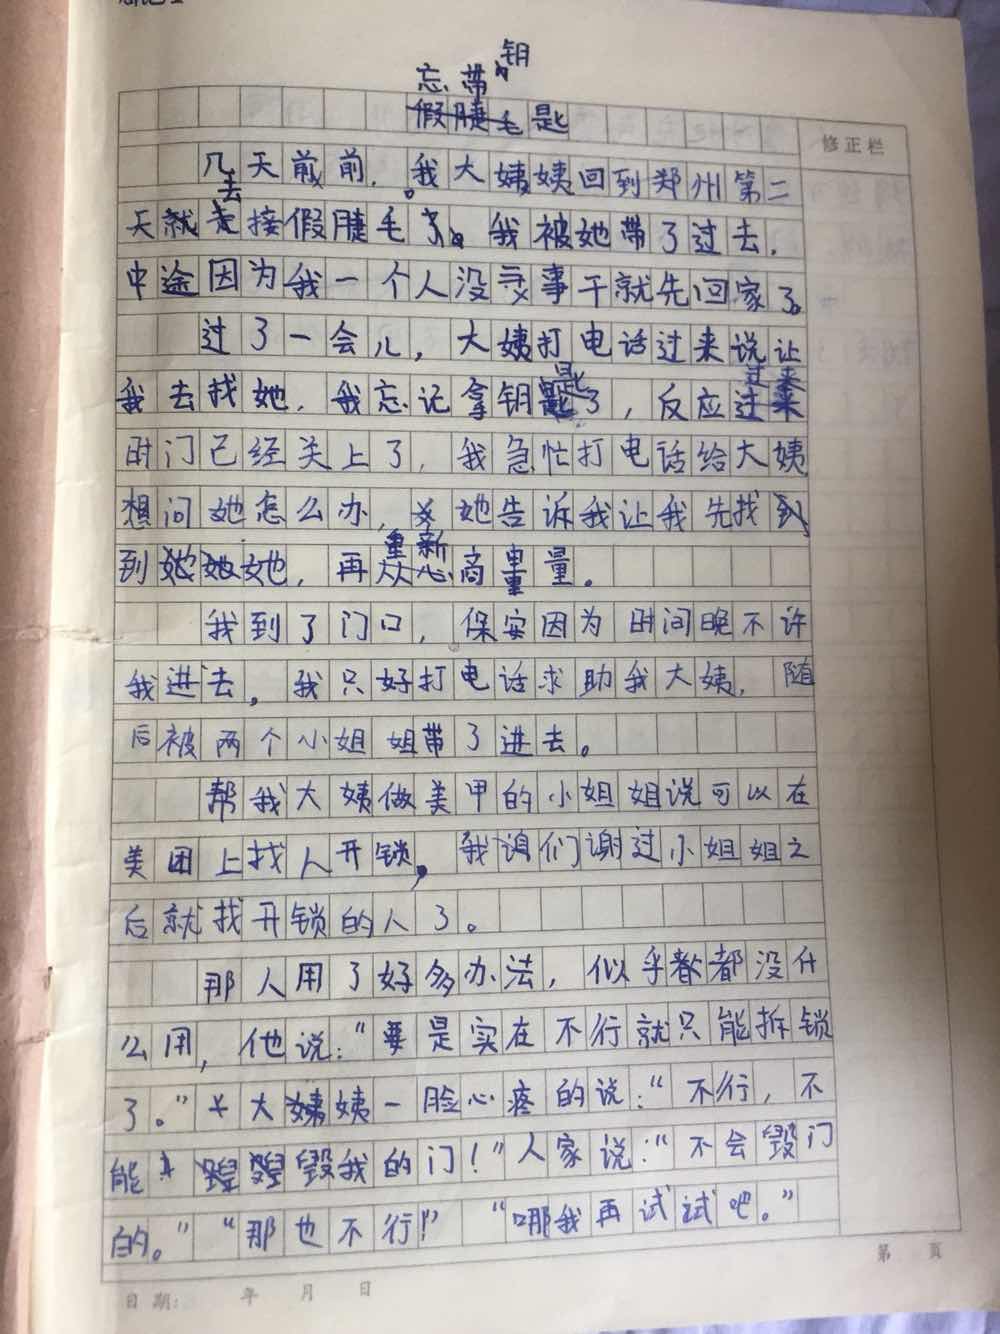 忘带钥
假睫毛匙
修正栏
几天前前，我大姨姨回到郑州第二
天就去接假睫毛了。我被她带了过去，
中途因为我一个人没事干就先回家了。
过了一会儿，大姨打电话过来说让
我去找她，我忘记拿钥匙了，反应过来
时门已经关上了，我急忙打电话给大姨
想问她怎么办，她告诉我让我先找到
到她她她，再重新商量量。
我到了门口，保安因为时间晚不许
我进去，我只好打电话求助我大姨，随
后被两个小姐姐带了进去。
帮我大姨做美甲的小姐姐说可以在
美团上找人开锁，我们谢过小姐姐之
后就找开锁的人了。
那人用了好多办法，似乎都都没什
么用，他说：“要是实在不行就只能拆锁
了。”大姨姨一脸心疼的说：“不行，不
能毁我的门！”人家说：“不会毁门
的。”“那也不行！”“哪我再试试吧。”
第 页
日期： 年 月 日